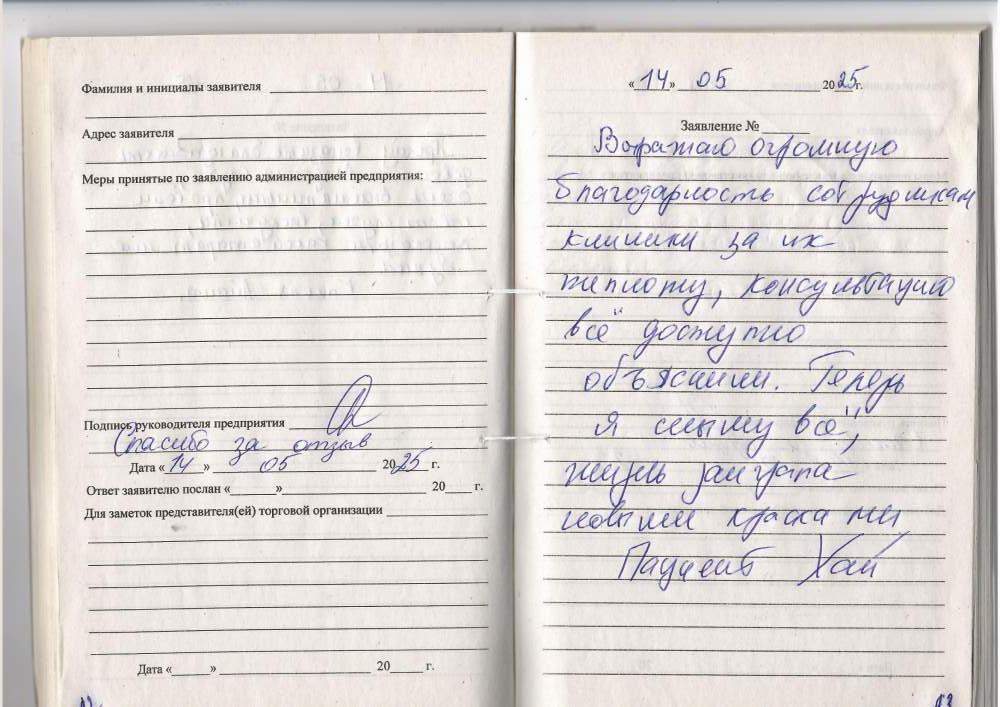 Фамилия и инициалы заявителя
Адрес заявителя
Меры принятые по заявлению администрацией предприятия:
Подпись руководителя предприятия
Спасибо за отзыв
Дата «14» 05 2025 г.
Ответ заявителю послан «    »    20    г.
Для заметок представителя(ей) торговой организации
Дата «    »    20    г.
«14» 05 2025г.
Заявление №
Выражаю огромную
благодарность сотрудникам
клиники за их
теплоту, консультацию
всё доступно
объяснили. Теперь
я слышу всё,
жизнь заиграла
новыми красками
Пациент